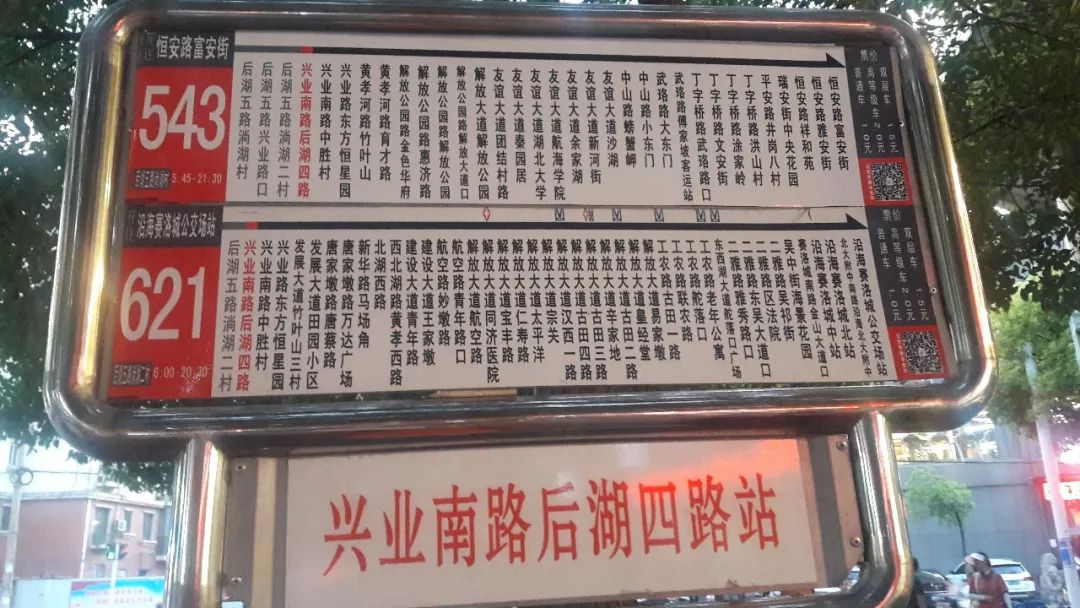 恒安路富安街
543
后湖五路淌湖村 5:45-21:30
后湖五路淌湖村
后湖五路兴业路口
后湖五路淌湖二村
兴业南路后湖四路
兴业南路中胜村
兴业路东方恒星园
黄孝河路竹叶山
黄孝河路育才路
解放公园路金色华府
解放公园路惠济路
解放公园路解放大道口
解放大道解放公园
友谊大道团结村路
友谊大道秦园居
友谊大道湖北大学
友谊大道航海学院
友谊大道余家湖
友谊大道新河街
友谊大道沙湖
中山路螃蟹岬
中山路小东门
武珞路大东门
武珞路傅家坡客运站
丁字桥路武珞路口
丁字桥路文安街
丁字桥路涂家岭
丁字桥路洪山村
平安路井岗八村
瑞安街中央花园
恒安路祥和苑
恒安路雅安街
恒安路富安街
票价
普通车 1.0元
高等级车 2.0元
双层车 1.5元
沿海赛洛城公交场站
621
后湖五路淌湖二村 6:00-20:30
后湖五路淌湖二村
兴业南路后湖四路
兴业南路中胜村
兴业路东方恒星园
发展大道竹叶山三村
发展大道田园小区
唐家墩路唐蔡路
唐家墩路万达广场
新华路马场角
北湖西路
西北湖路黄孝西路
建设大道青年路
建设大道王家墩
航空路妙墩路
航空路青年路口
解放大道航空路
解放大道同济医院
解放大道宝丰路
解放大道仁寿路
解放大道太平洋
解放大道宗关
解放大道汉西一路
解放大道古田四路
解放大道古田三路
解放大道辛家地
解放大道古田二路
解放大道皇经堂
解放大道易家墩
工农路古田一路
工农路联农路
工农路舵落口
工农路老年公寓
东西湖大道舵落口广场
二雅路雅秀路口
二雅路东吴大道口
二雅路区法院
二雅路吴祁街
吴中街海景花园
赛洛城南路金山大道口
沿海赛洛城中站
沿海赛洛城北站
北大附中南路沿海北大附中
沿海赛洛城公交场站
票价
普通车 1.0元
高等级车 2.0元
双层车 1.5元
兴业南路后湖四路站